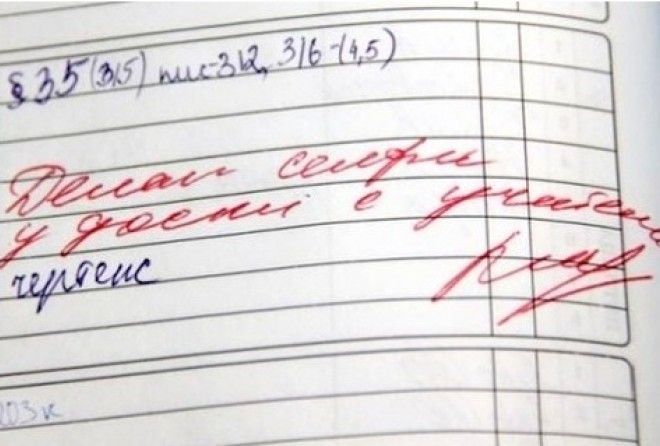 §35 (3,5) пис-312, 316-(4,5)
Делал селфи
у доски с учителем
чертеж
203 к